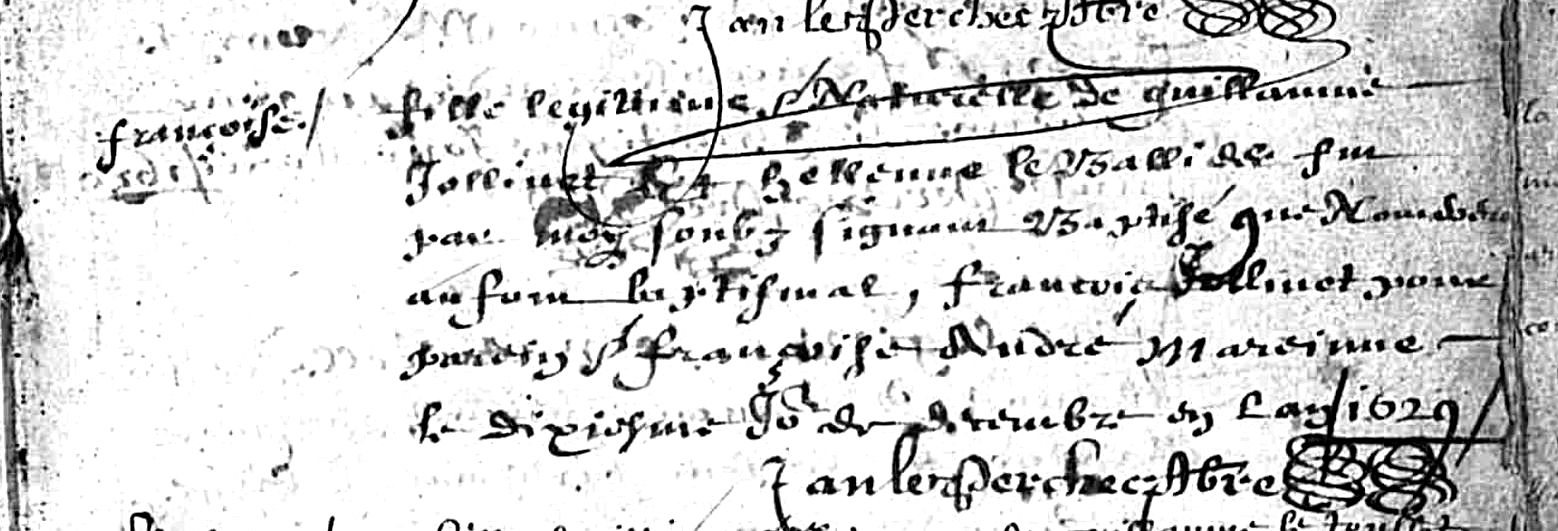 Jan le Perchec pbre
francoise / fille legittime et Naturelle de guillaume
Jollinet Et hellenne le Ballide fut
par moy soubz signant Baptisé que Nommée
au font baptismal, francois Jollinet pour
parein et francoise André Mareinne
le dixiesme Jor de decembre en Lan 1629
Jan le Perchec pbre